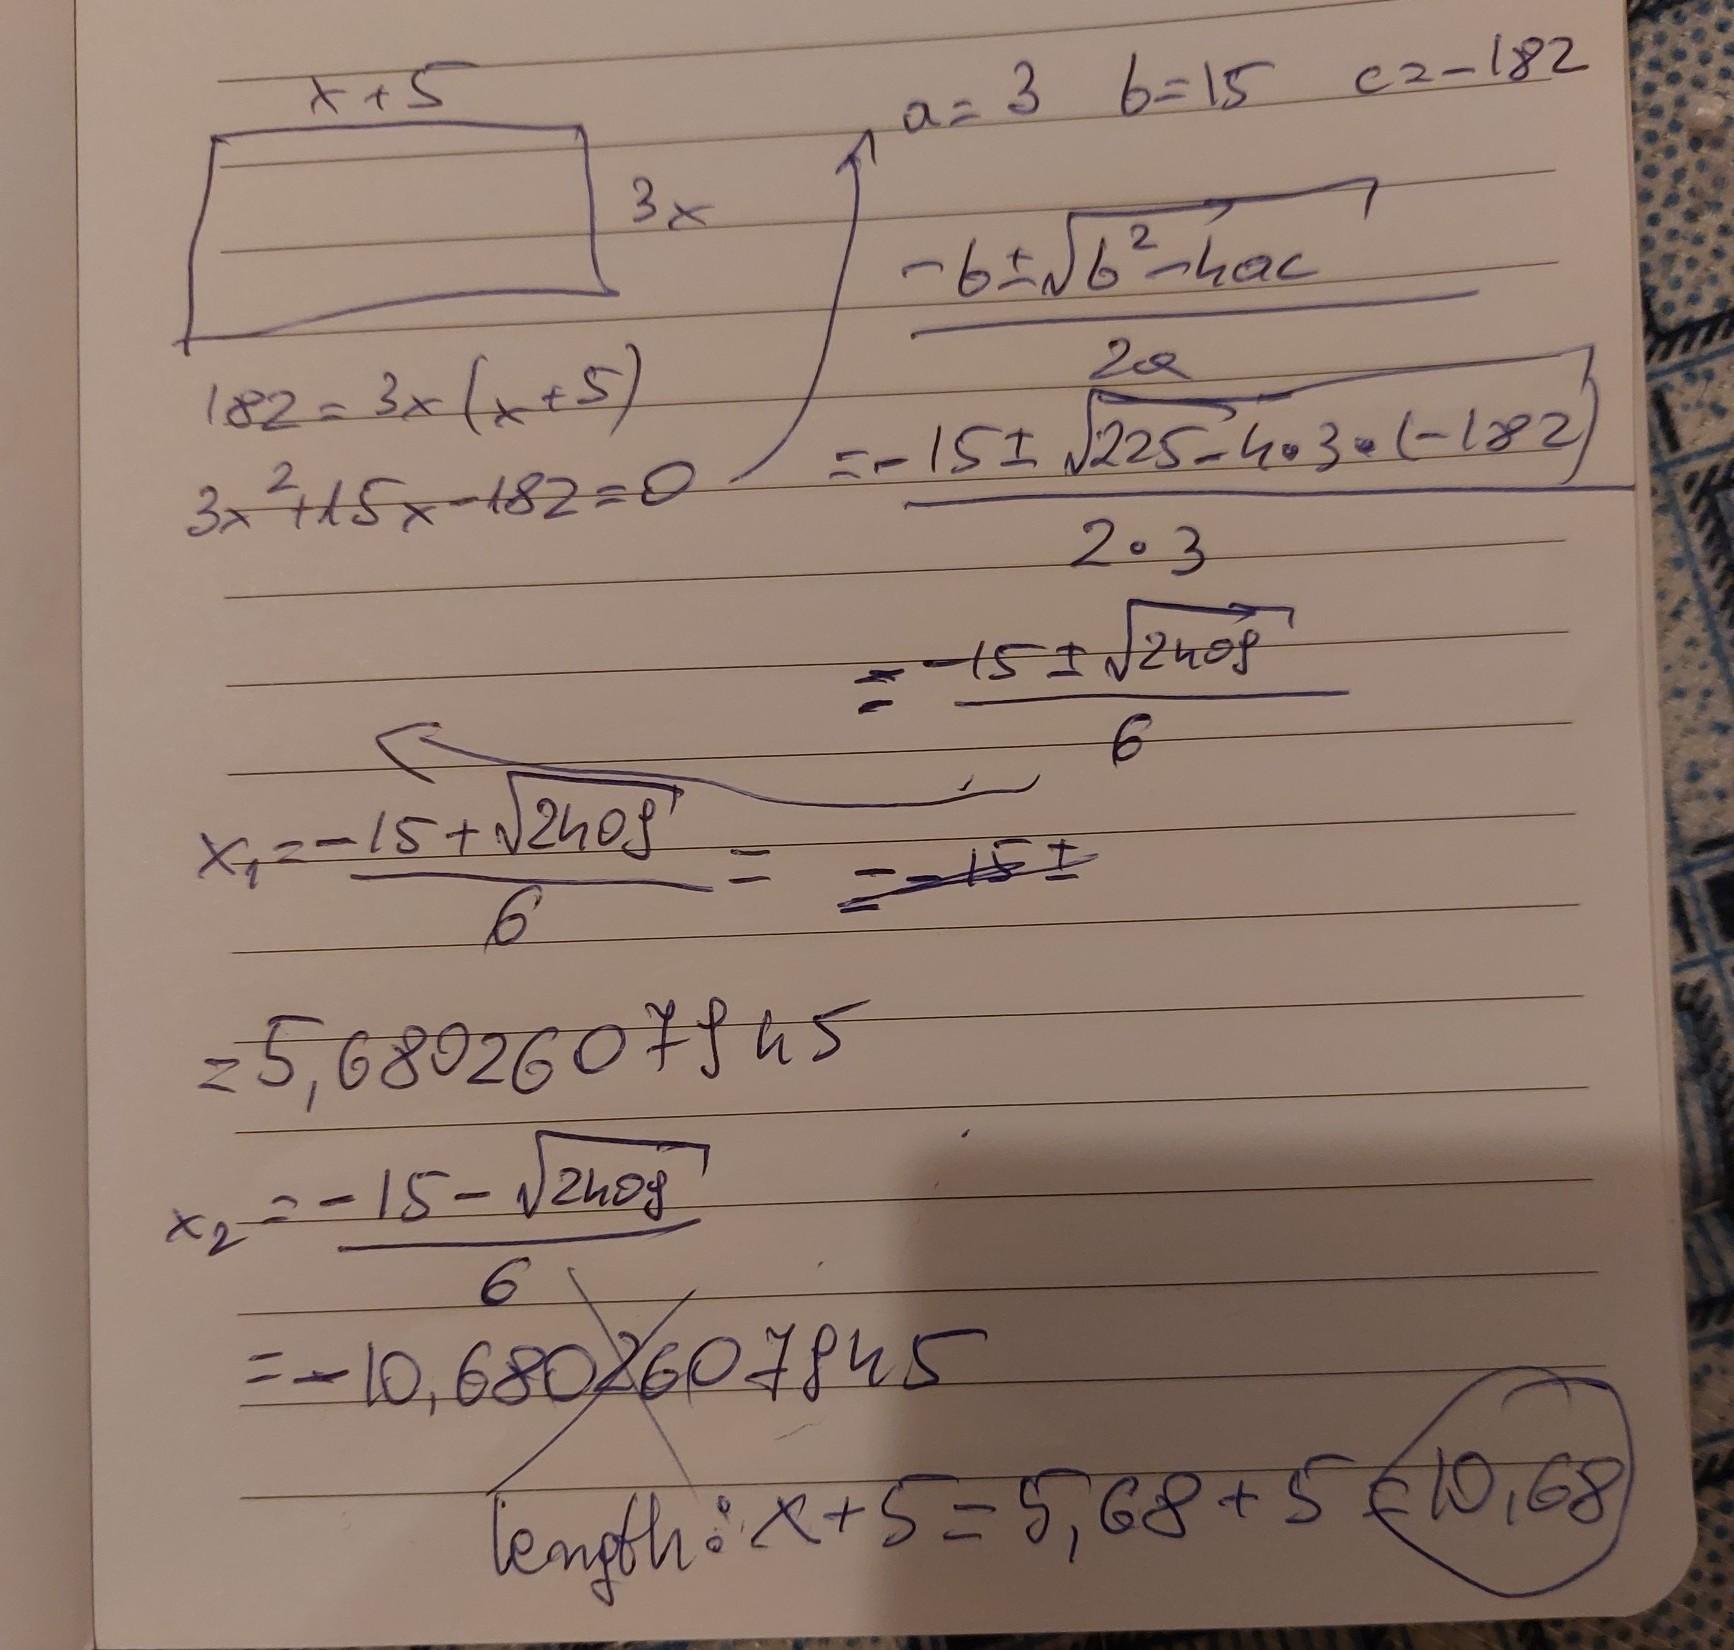 x+5
3x
182 = 3x(x+5)
3x²+15x-182=0
a=3 b=15 c=-182
-b±√b²-4ac
2a
=-15±√225-4·3·(-182)
2·3
=-15±√2409
6
x₁=-15+√2409 =
6
=-15±
=5,6802607945
x₂=-15-√2409
6
=-10,6802607945
length: x+5=5,68+5=10,68